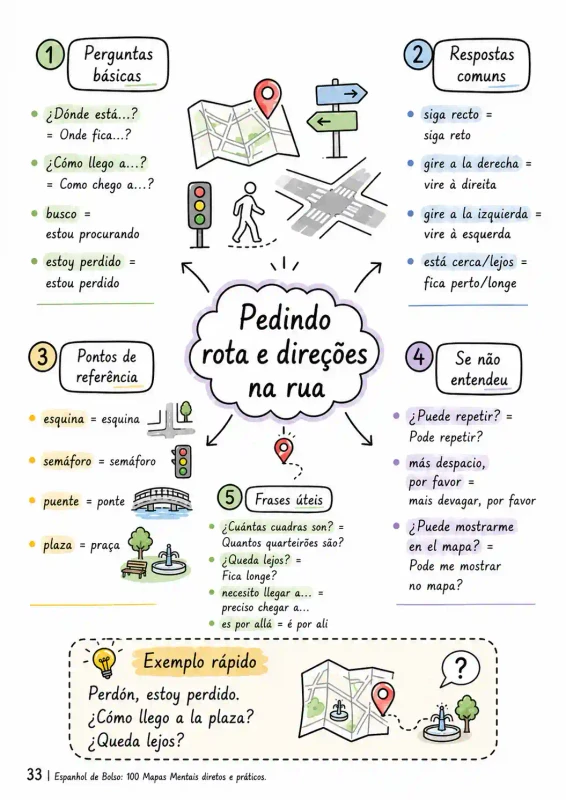 1
Perguntas
básicas
¿Dónde está...?
= Onde fica...?
¿Cómo llego a...?
= Como chego a...?
busco =
estou procurando
estoy perdido =
estou perdido
2
Respostas
comuns
siga recto =
siga reto
gire a la derecha =
vire à direita
gire a la izquierda =
vire à esquerda
está cerca/lejos =
fica perto/longe
Pedindo
rota e direções
na rua
3
Pontos de
referência
esquina = esquina
semáforo = semáforo
puente = ponte
plaza = praça
4
Se não
entendeu
¿Puede repetir? =
Pode repetir?
más despacio,
por favor =
mais devagar, por favor
¿Puede mostrarme
en el mapa? =
Pode me mostrar
no mapa?
5
Frases úteis
¿Cuántas cuadras son? =
Quantos quarteirões são?
¿Queda lejos? =
Fica longe?
necesito llegar a... =
preciso chegar a...
es por allá = é por ali
Exemplo rápido
Perdón, estoy perdido.
¿Cómo llego a la plaza?
¿Queda lejos?
?
33 | Espanhol de Bolso: 100 Mapas Mentais diretos e práticos.